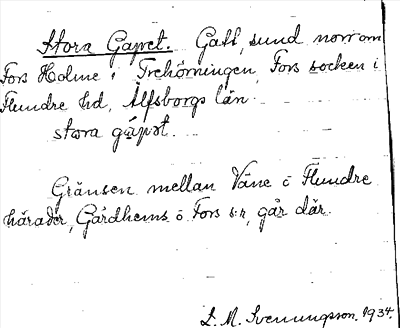 Stora Gapet. Gatt, sund norr om
Fors Holme i Trehörningen, Fors socken i
Flundre hd, Älfsborgs län.
stora gápət.
Gränsen mellan Väne o Flundre
härader, Gärdhems o Fors s:r, går där.
L. M. Svenungsson. 1934.